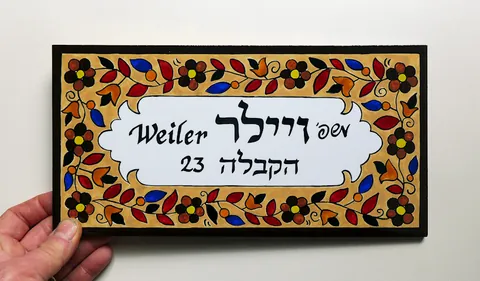 משפ' ויילר Weiler
הקבלה 23